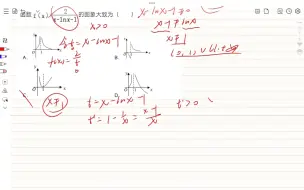 函数f(x)=2/(x-lnx-1)的图象大致为( )
x>0
x-lnx-1≠0
x-1≠lnx
x≠1
A.
B.
令t=x-lnx-1
f(x)=2/t
(0,1)∪(1,+∞)
C.
x≠1
t=x-lnx-1
t'>0
t'=1-1/x=(x-1)/x